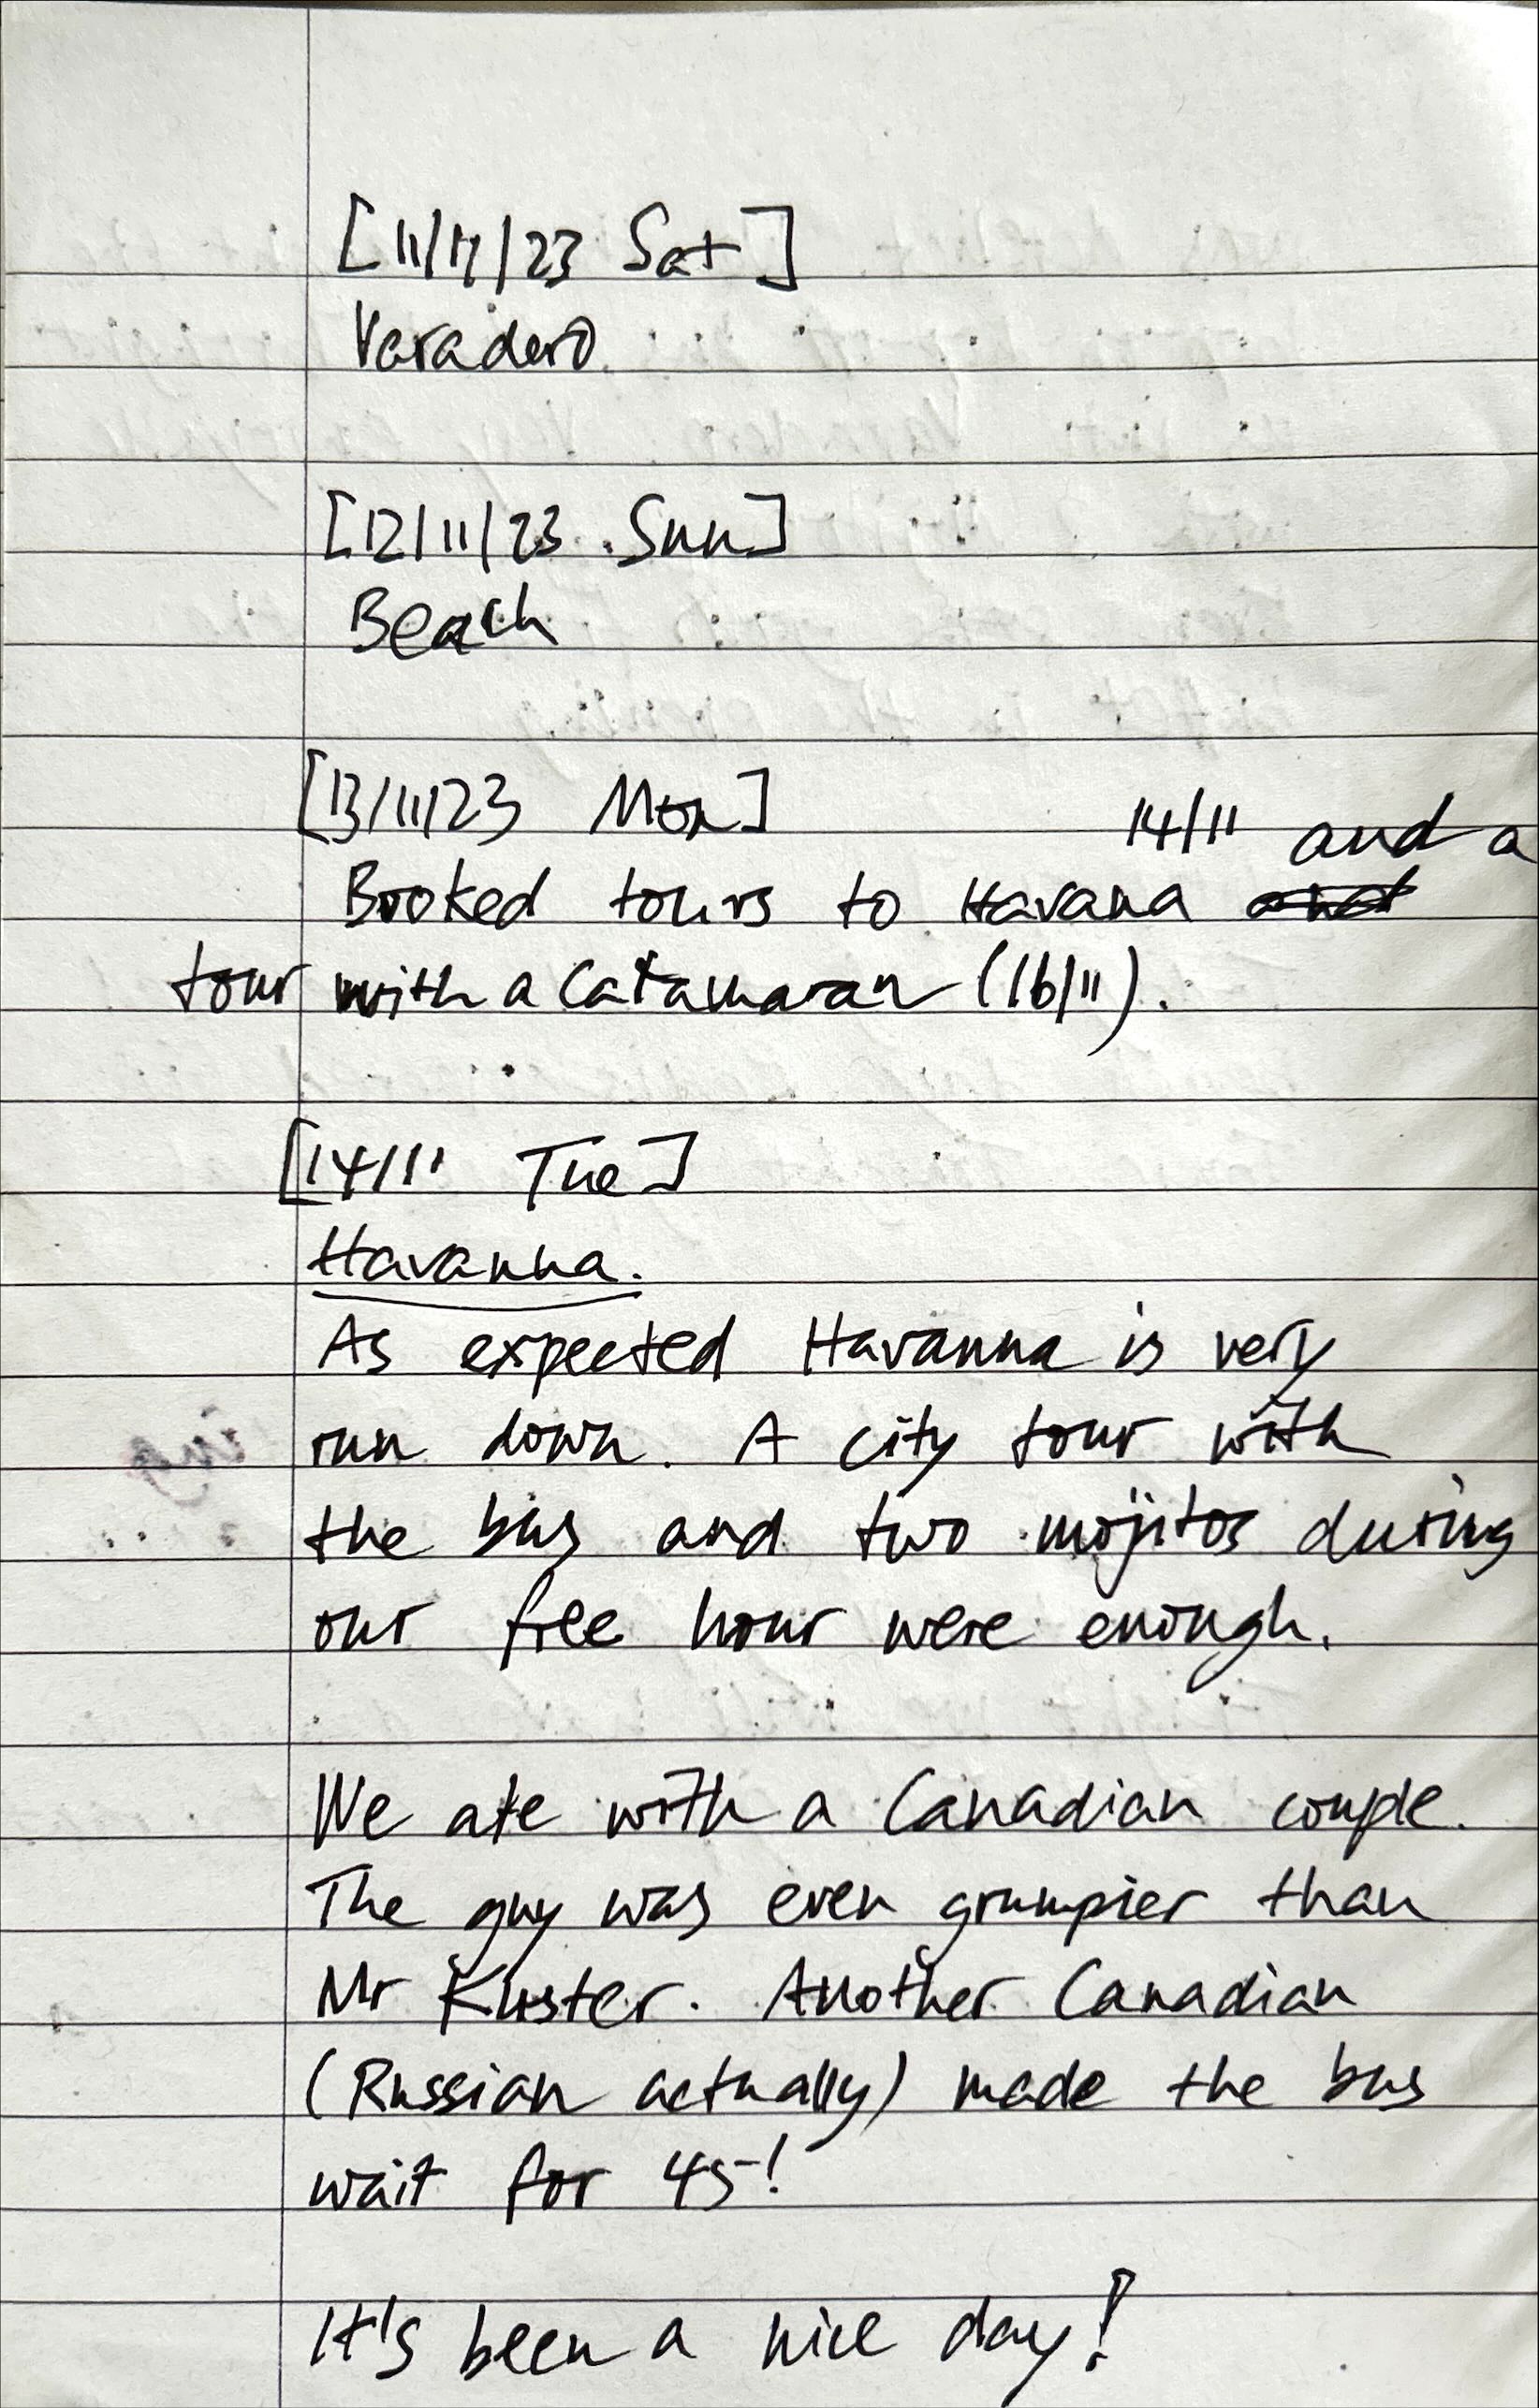 [11/11/23 Sat]
Varadero
[12/11/23 Sun]
Beach
[13/11/23 Mon]
14/11 and a
Booked tours to Havana
tour with a Catamaran (16/11).
[14/11 Tue]
Havanna.
As expected Havanna is very
run down. A city tour with
the bus and two mojitos during
our free hour were enough.
We ate with a Canadian couple.
The guy was even grumpier than
Mr Kuster. Another Canadian
(Russian actually) made the bus
wait for 45!
It's been a nice day!